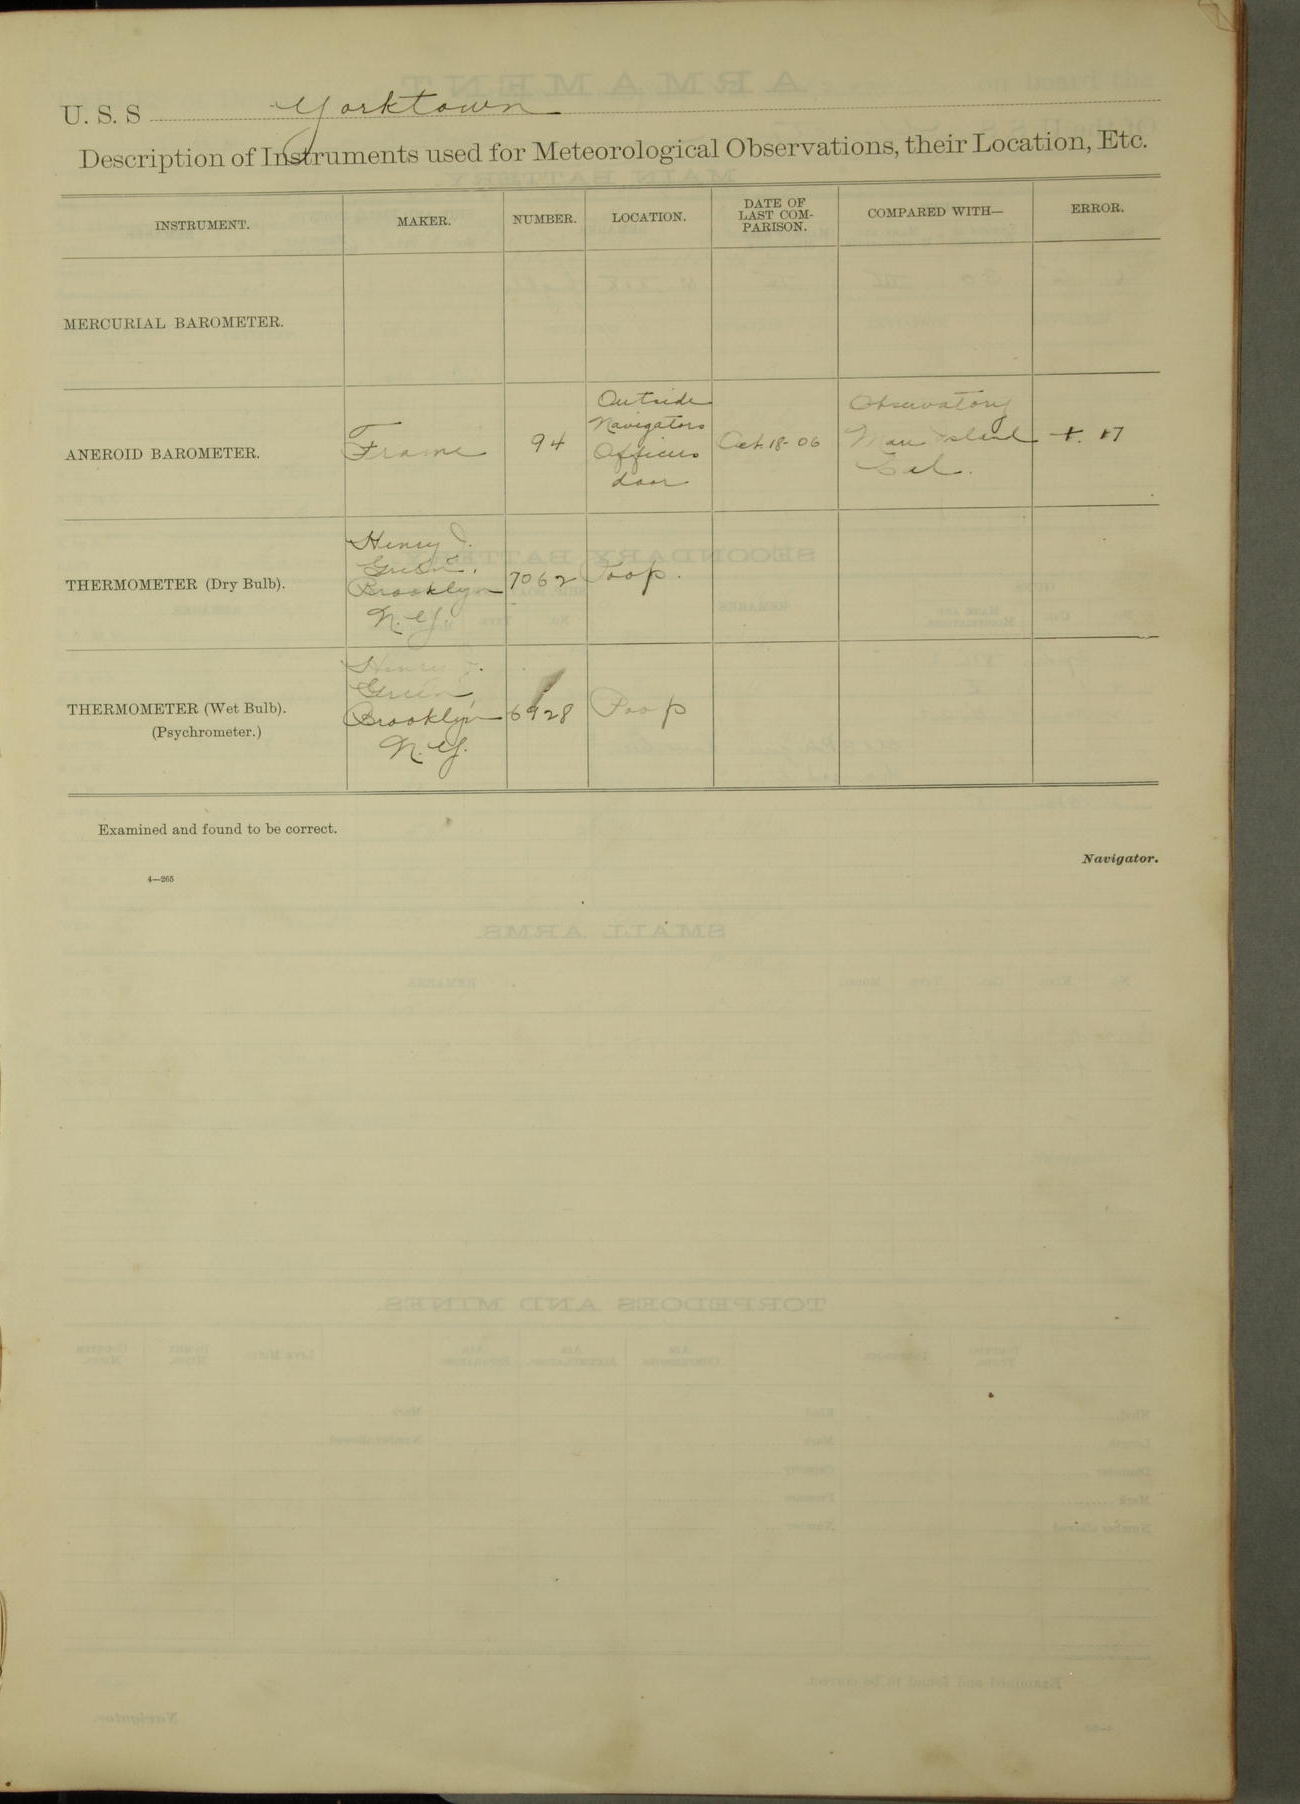 U. S. S. Yorktown
Description of Instruments used for Meteorological Observations, their Location, Etc.
INSTRUMENT. MAKER. NUMBER. LOCATION. DATE OF LAST COM-PARISON. COMPARED WITH— ERROR.
MERCURIAL BAROMETER.
ANEROID BAROMETER. Frame 94 Outside Navigators Officers door Oct. 18-06 Observatory Mare Island Cal. +. 17
THERMOMETER (Dry Bulb). Henry J. Green. Brooklyn N. Y. 7062 Poop.
THERMOMETER (Wet Bulb). (Psychrometer.) Henry J. Green, Brooklyn N. Y. 6928 Poop
Examined and found to be correct.
Navigator.
4—265